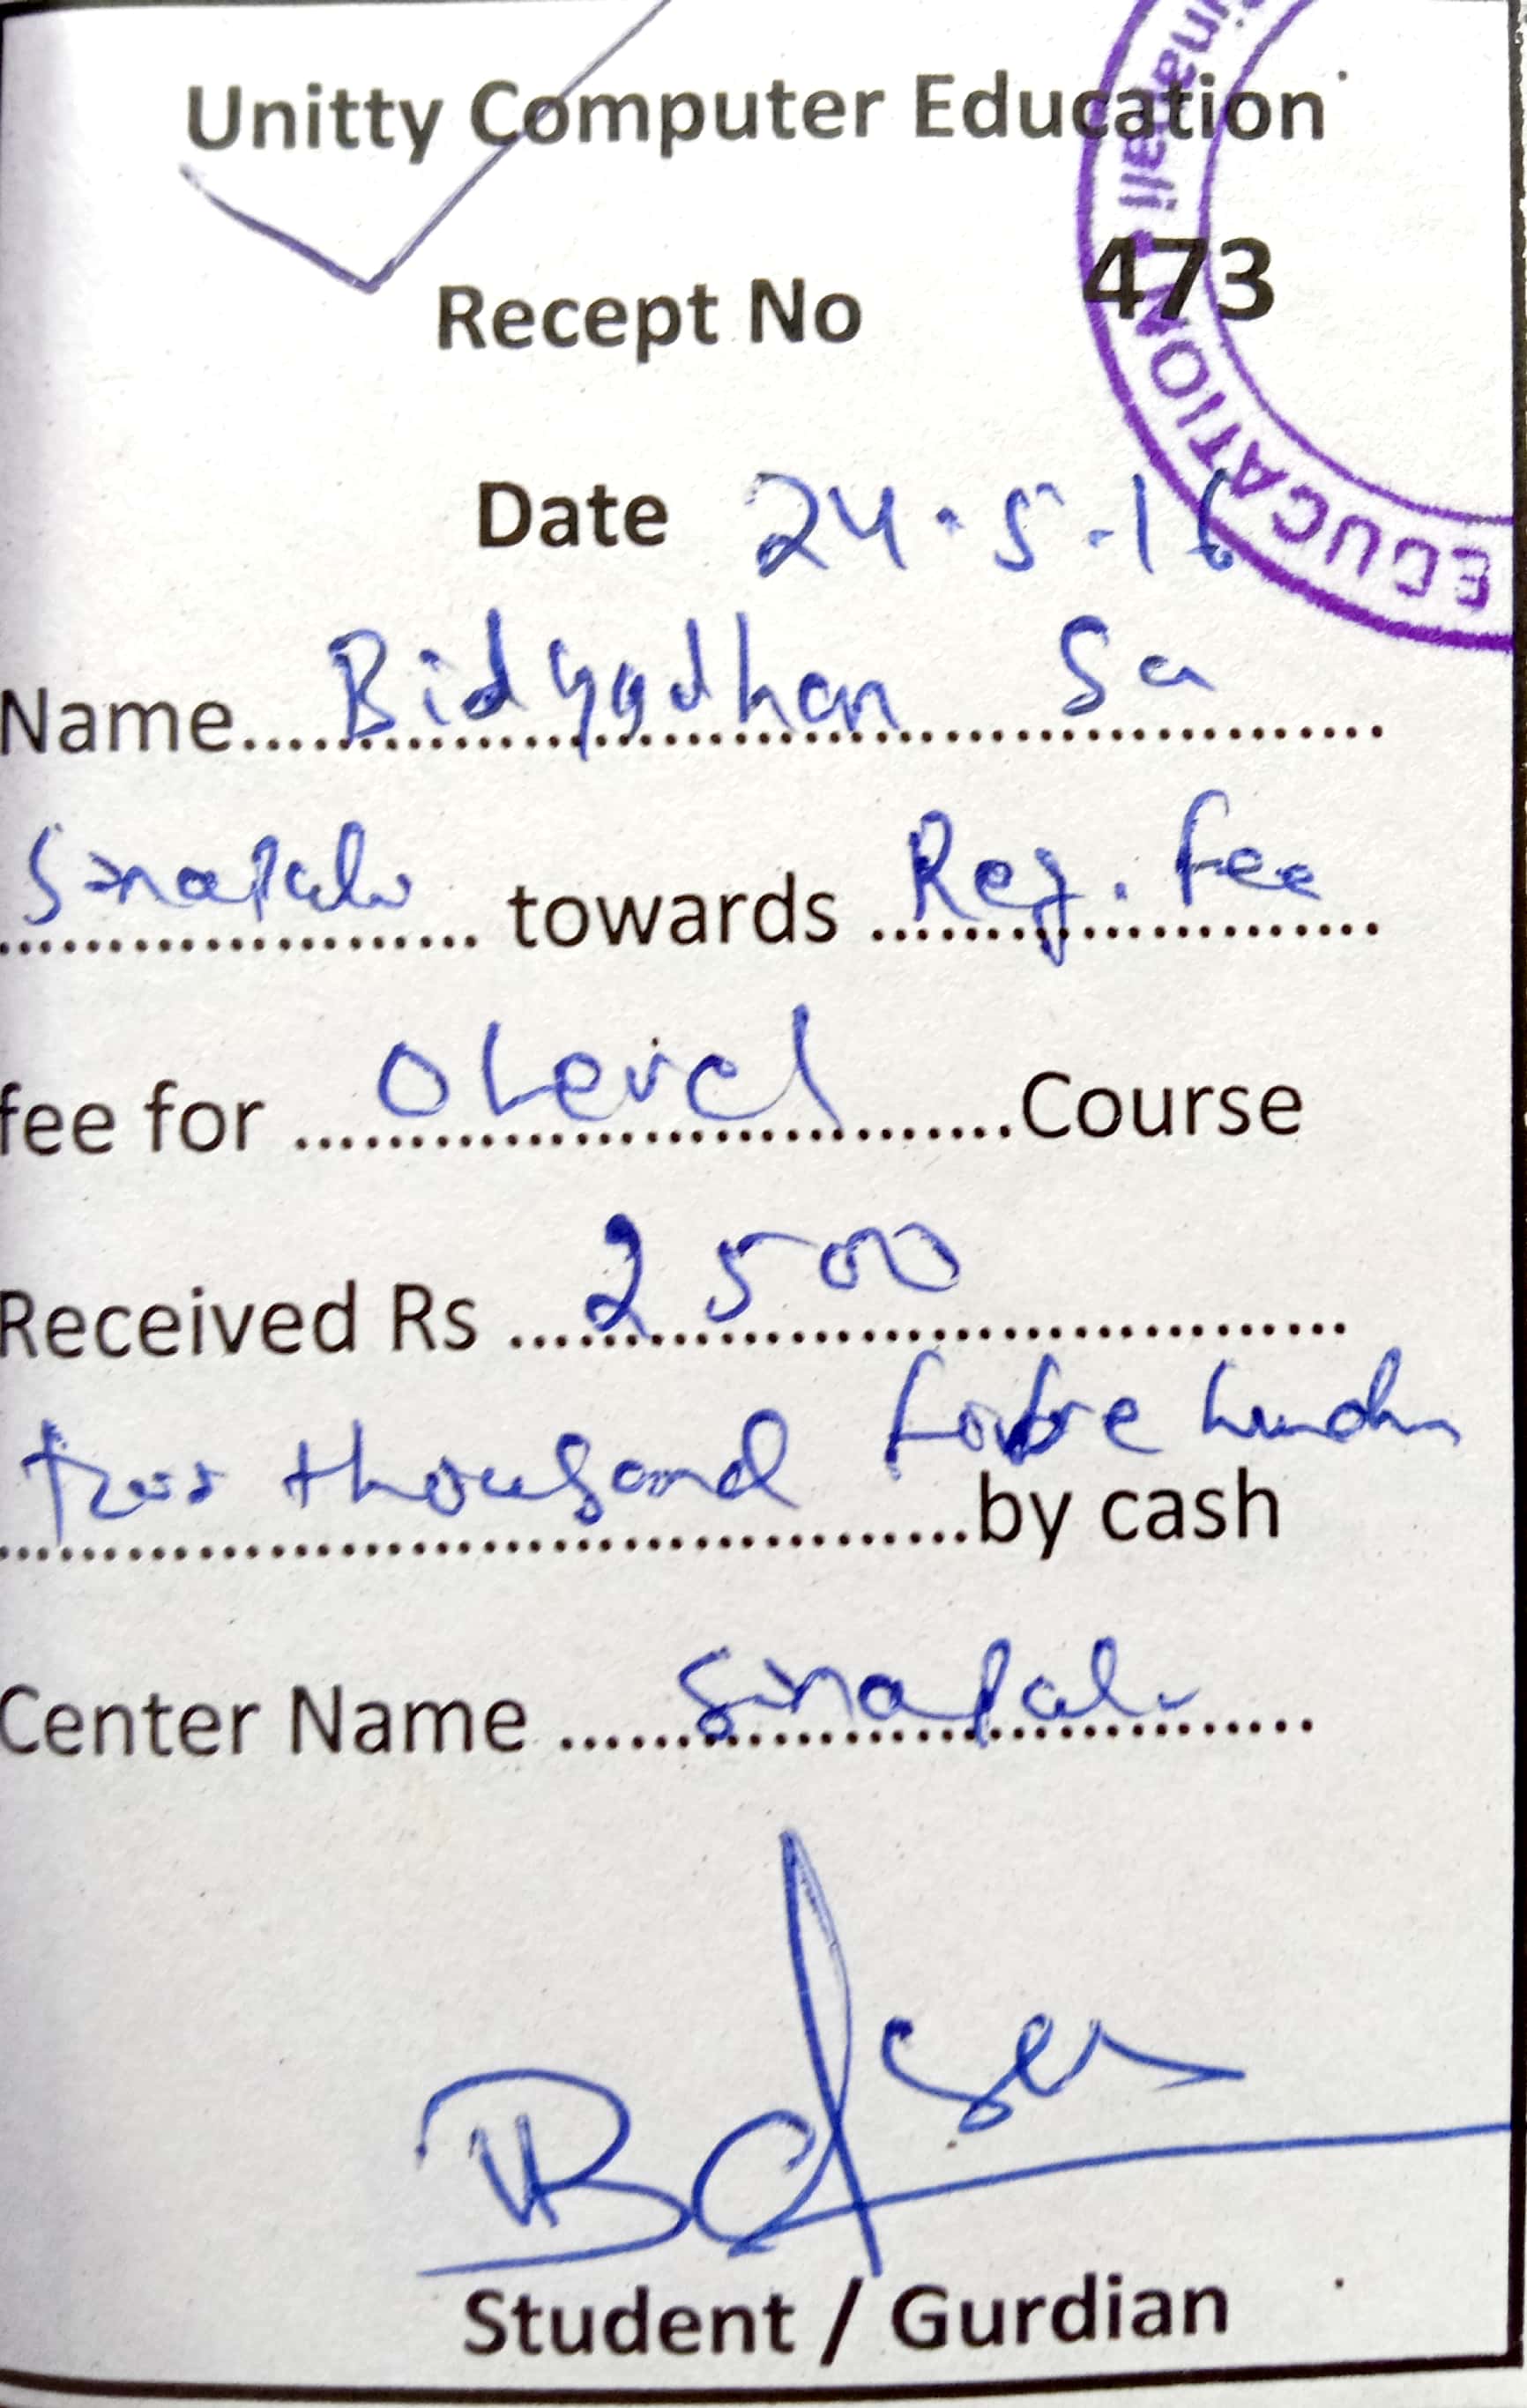 Unitty Computer Education
Recept No 473
Date 24.5.16
Name Bidyadhan Sa
Sinapali towards Reg. fee
fee for O Level Course
Received Rs 2500
thousand by cash
Center Name Sinapali
Student / Gurdian
EDUCATION